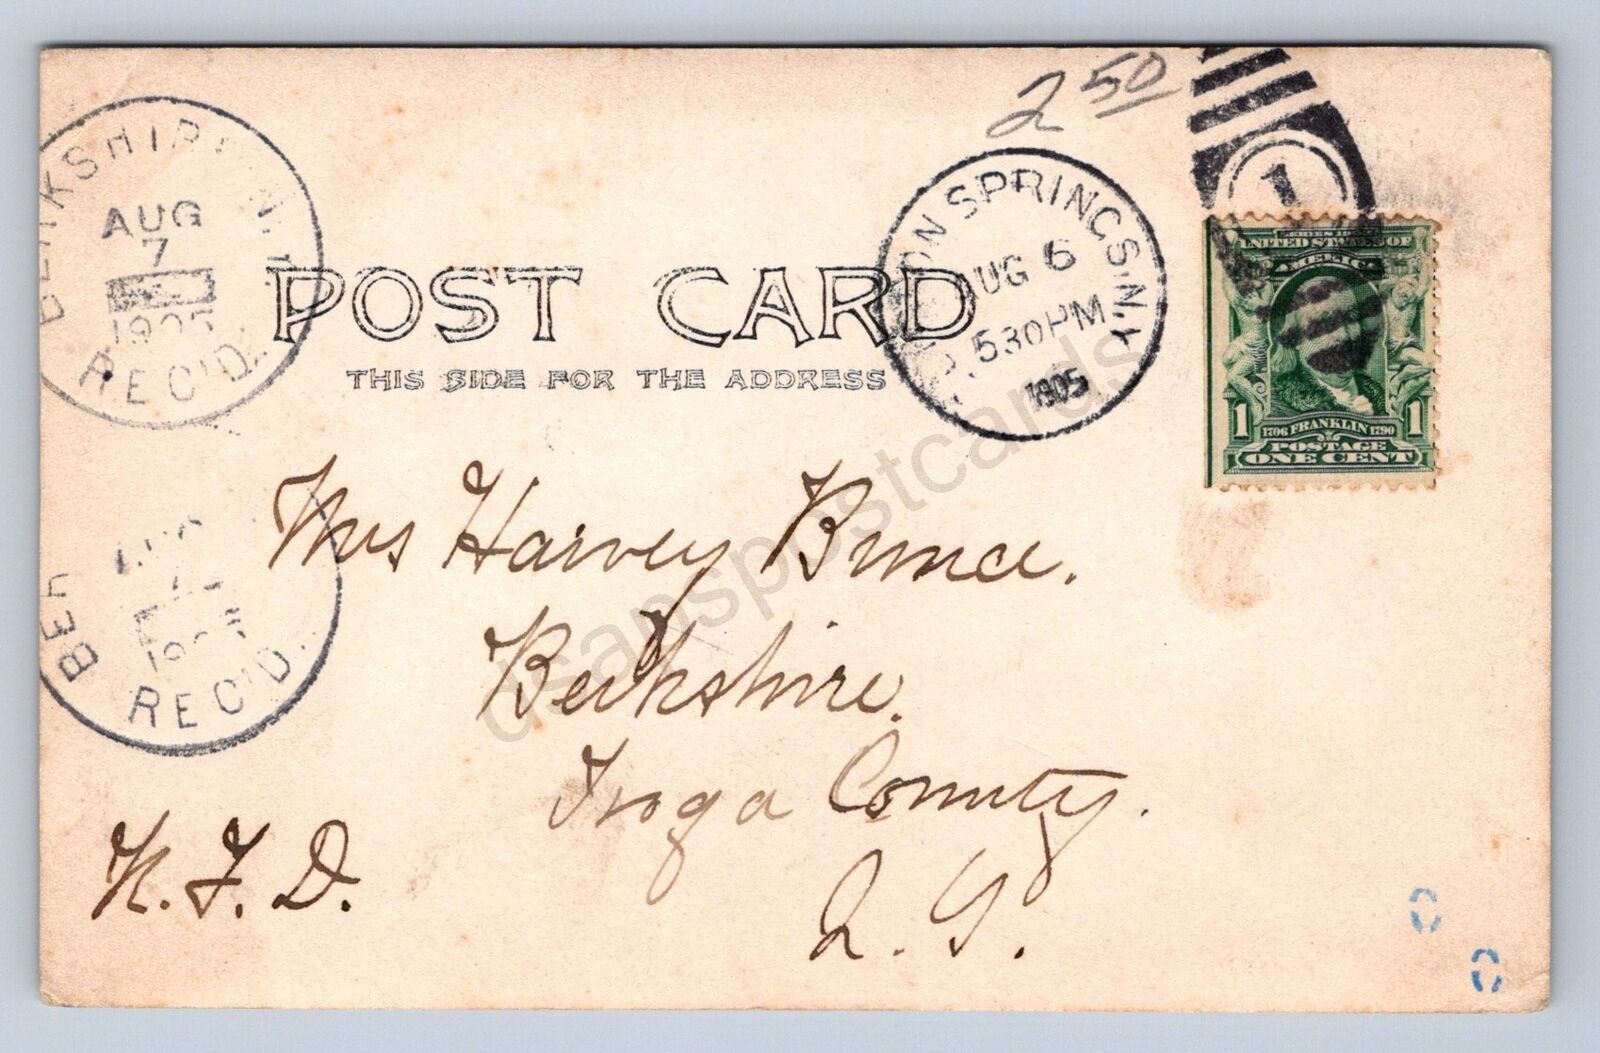 2 50
BERKSHIRE, N.Y.
AUG
7
1905
REC'D.
SPRINGS, N.Y.
AUG 6
530PM
1905
1
POST CARD
THIS SIDE FOR THE ADDRESS
SERIES 1902
UNITED STATES OF
AMERICA
1 1706 FRANKLIN 1790 1
POSTAGE
ONE CENT
Mrs Harvey Bunce.
Berkshire.
Tioga County.
N. Y.
R. F. D.
BER
REC'D.
dsanspostcards